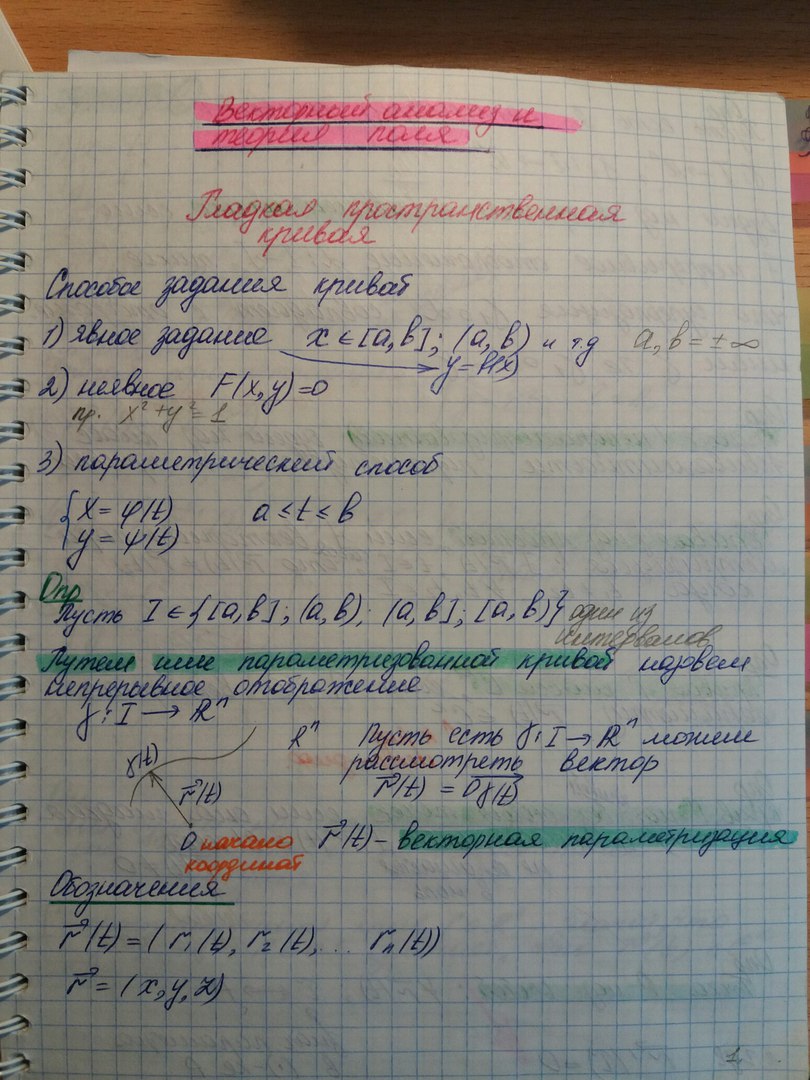 Векторный анализ и
теория поля
Гладкая пространственная
кривая
Способое задания кривой
1) явное задание x ∈ [a, b]; (a, b) и т.д a, b = ± ∞
y = f(x)
2) неявное F(x, y) = 0
пр. x² + y² = 1
3) параметрический способ
{ x = φ(t) a ≤ t ≤ b
y = ψ(t)
Опр
Пусть I ∈ {[a, b]; (a, b); (a, b]; [a, b)} один из
интервалов
Путем или параметризованной кривой назовем
непрерывное отображение
γ: I → ℝⁿ
ℝⁿ Пусть есть γ: I → ℝⁿ можем
γ(t) рассмотреть вектор
r⃗(t) r⃗(t) = Oγ(t)
O начало r⃗(t) – векторная параметризация
координат
Обозначения
r⃗(t) = (r₁(t), r₂(t), ... rₙ(t))
r⃗ = (x, y, z)
1.